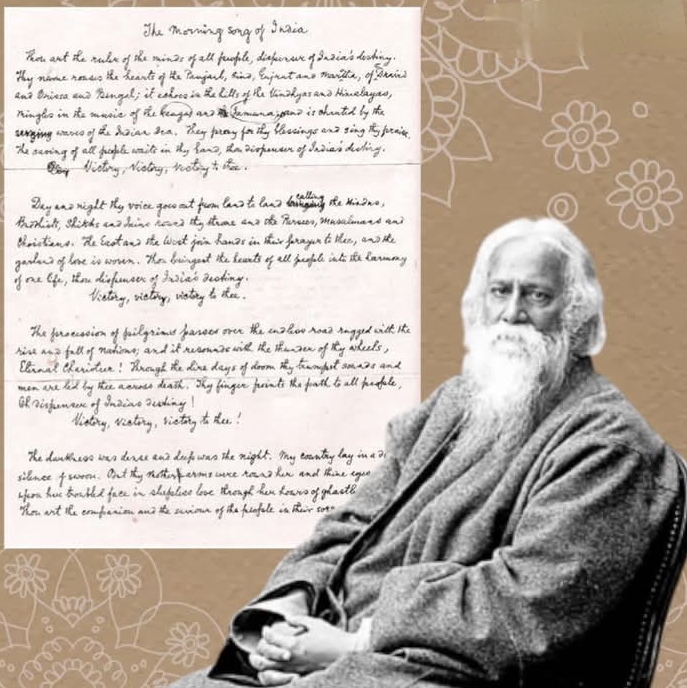 The Morning song of India
Thou art the ruler of the minds of all people, dispenser of India's destiny.
Thy name rouses the hearts of the Panjaub, Sind, Gujrat and Maratha, of Dravid
and Orissa and Bengal; it echoes in the hills of the Vindhyas and Himalayas,
mingles in the music of the and Jamuna, and is chanted by the
waves of the Indian Sea. They pray for thy blessings and sing thy praise.
The saving of all people waits in thy hand, thou dispenser of India's destiny.
Victory, Victory, Victory to thee.
Day and night thy voice goes out from land to land calling the Hindus,
Budhists, Shikhs and Jains round thy throne and the Parsees, Musalmans and
Christians. The East and the West join hands in their prayer to thee, and the
garland of love is woven. Thou bringest the hearts of all people into the harmony
of one life, thou dispenser of India's destiny.
Victory, victory, victory to thee.
The procession of pilgrims passes over the endless road rugged with the
rise and fall of nations; and it resounds with the thunder of thy wheels,
Eternal Charioteer! Through the dire days of doom thy trumpet sounds and
men are led by thee across death. Thy finger points the path to all people,
Oh dispenser of India's destiny!
Victory, Victory, Victory to thee!
The darkness was dense and deep was the night. My country lay in a
silence of swoon. But thy mother arms were round her and thine eyes
upon her troubled face in sleepless love through her hours of
Thou art the companion and the saviour of the people in their